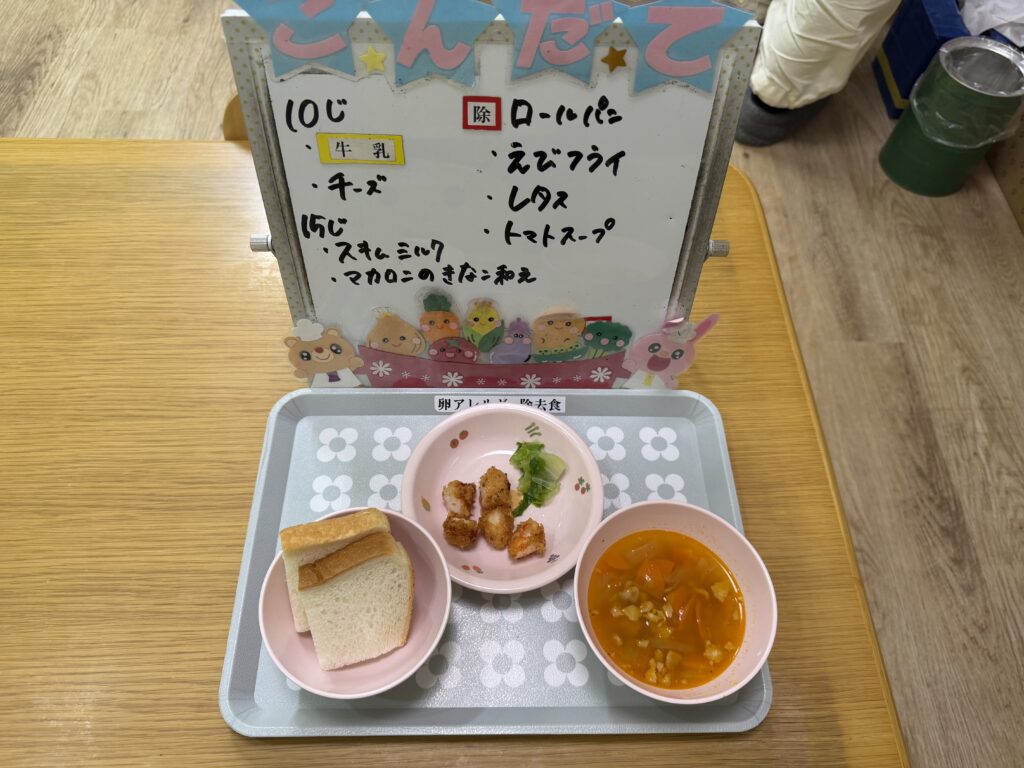 こんだて
10じ
・牛乳
・チーズ
15じ
・スキムミルク
・マカロニのきなこ和え
除 ロールパン
・えびフライ
・レタス
・トマトスープ
卵アレルギー除去食